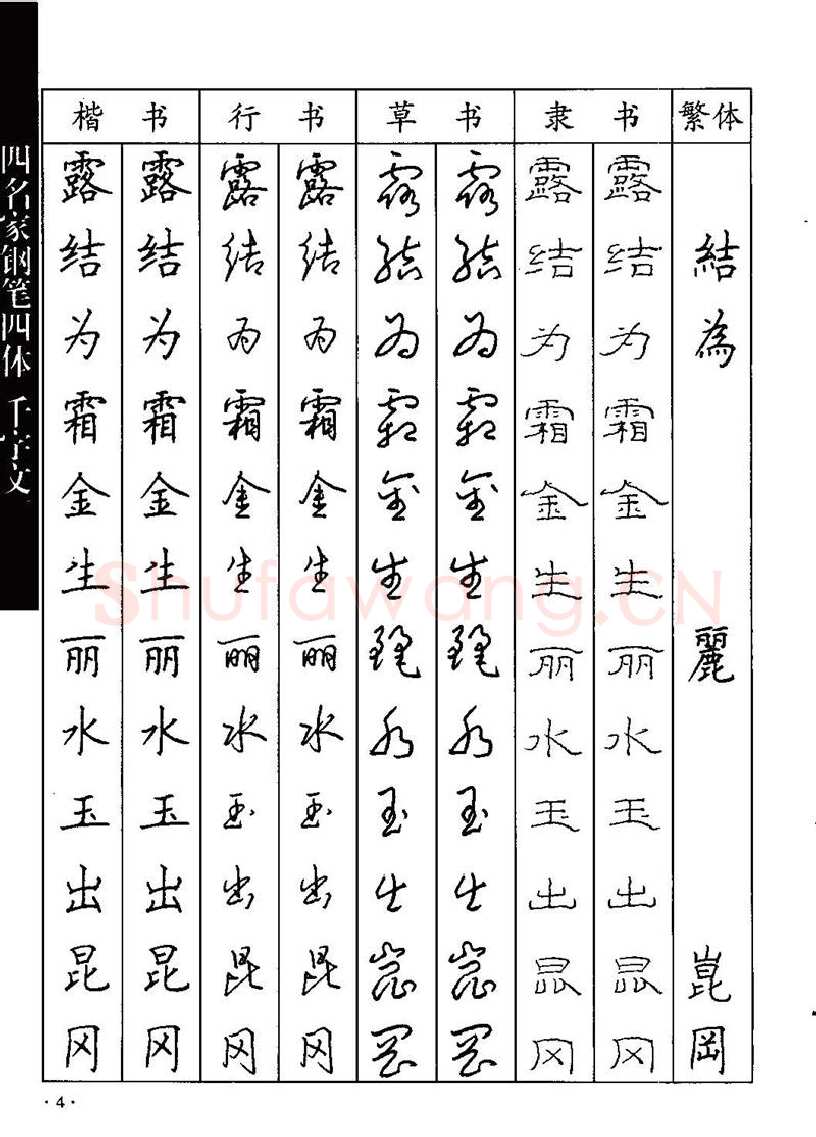 四名家钢笔四体 千字文
楷书 行书 草书 隶书 繁体
露 露 露 露 露 露 露 露
结 结 结 结 结 结 结 结 結
为 为 为 为 为 为 为 为 為
霜 霜 霜 霜 霜 霜 霜 霜
金 金 金 金 金 金 金 金
生 生 生 生 生 生 生 生
丽 丽 丽 丽 丽 丽 丽 丽 麗
水 水 水 水 水 水 水 水
玉 玉 玉 玉 玉 玉 玉 玉
出 出 出 出 出 出 出 出
昆 昆 昆 昆 崑 崑 昆 昆 崑
冈 冈 冈 冈 岡 岡 冈 冈 岡
Shufawang.CN
·4·